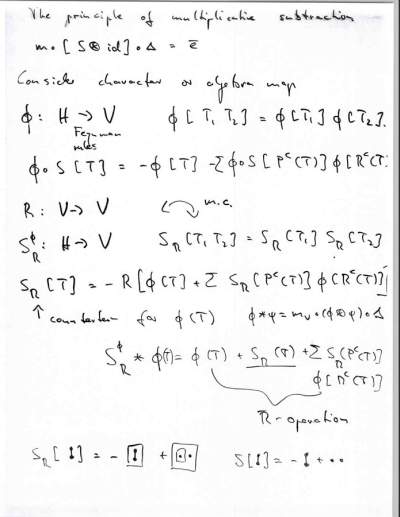 The principle of multiplicative subtraction
m ∘ [S ⊗ id] ∘ Δ = ē
Consider character or algebra map
ϕ : H → V ϕ[T₁ T₂] = ϕ[T₁] ϕ[T₂].
Feynman
rules
ϕ∘S [T] = -ϕ[T] - Σ ϕ∘S [Pᶜ(T)] ϕ[Rᶜ(T)
R : V → V m.c.
S_R^ϕ : H → V S_R[T₁ T₂] = S_R[T₁] S_R[T₂]
S_R[T] = - R[ϕ(T) + Σ S_R[Pᶜ(T)] ϕ(Rᶜ(T))]
↑ counterterm for ϕ(T) ϕ*φ = m_V ∘ (ϕ⊗φ) ∘ Δ
S_R^ϕ * ϕ(T) = ϕ(T) + S_R(T) + Σ S_R[Pᶜ(T)]
ϕ[Rᶜ(T)]
R-operation
S_R[I] = - I + •• S[I] = - I + ••